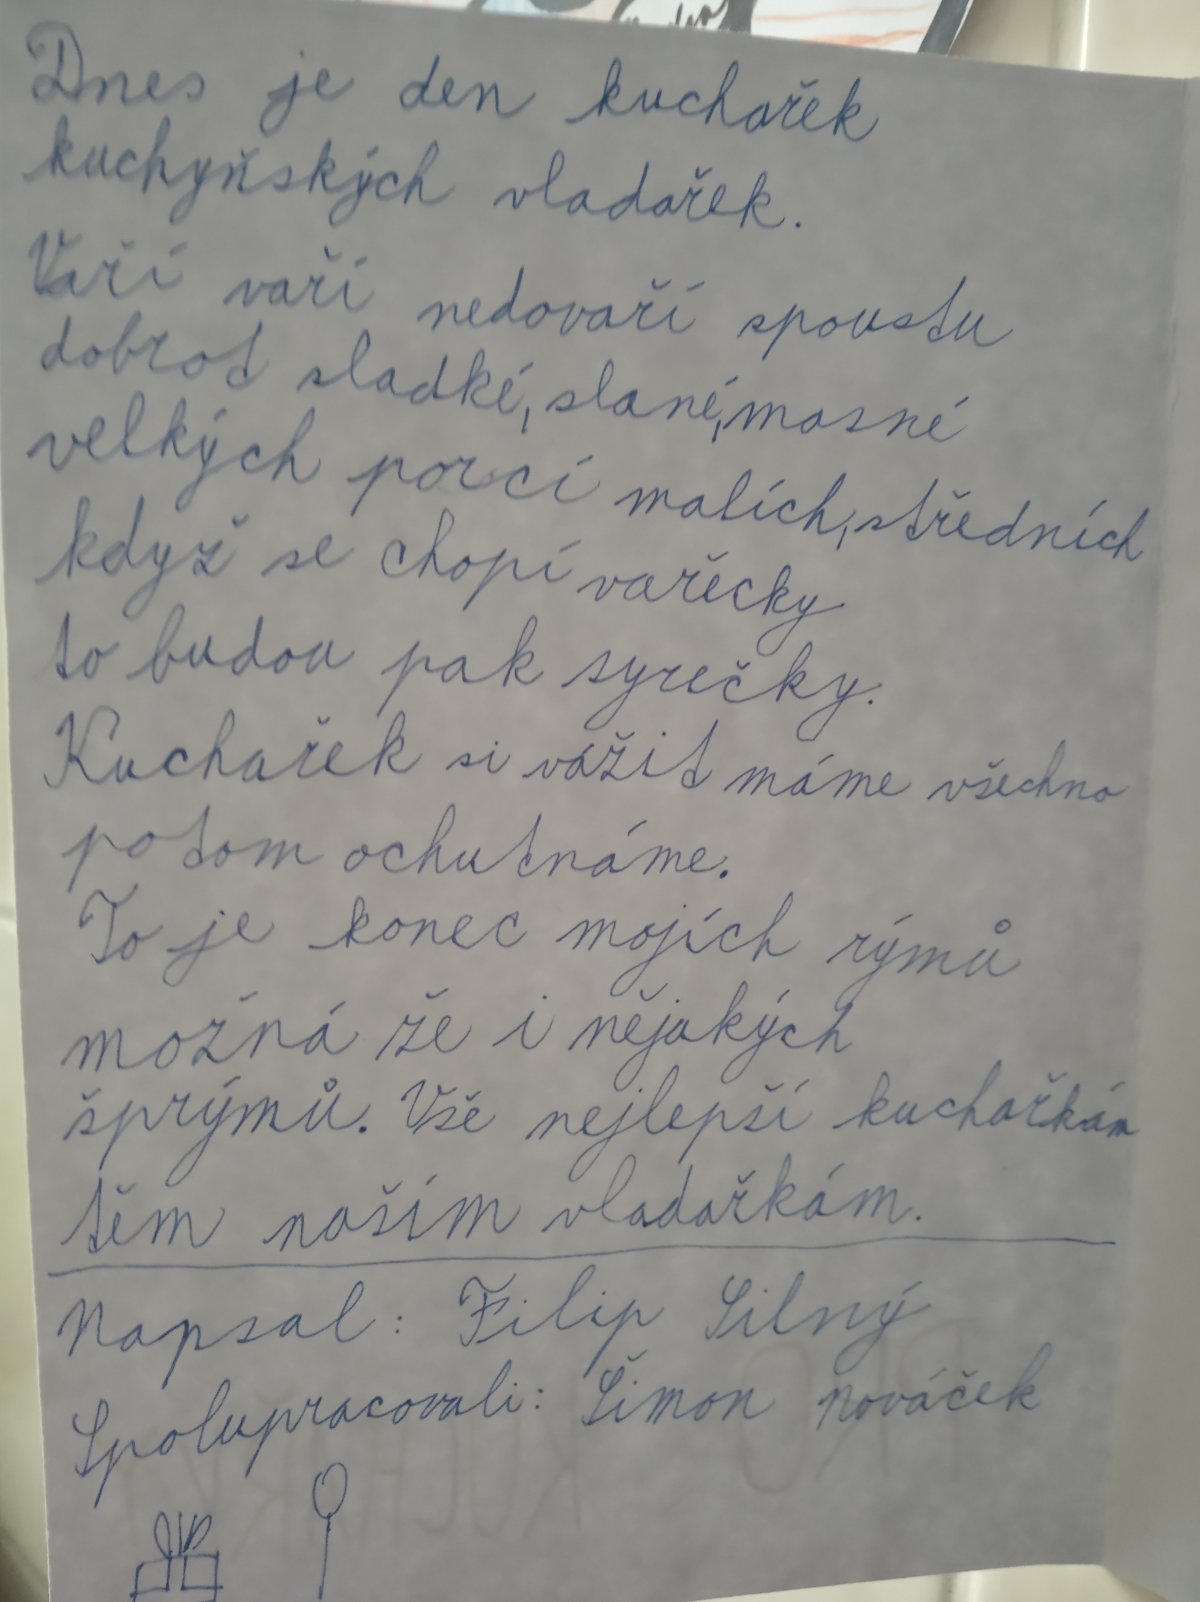 Dnes je den kuchařek
kuchyňských vladařek.
Vaří vaří nedovaří spoustu
dobrot sladké, slané, masné
velkých porcí malích, středních
když se chopí vařečky
to budou pak syrečky.
Kuchařek si vážit máme všechno
potom ochutnáme.
To je konec mojích rýmů
možná že i nějakých
šprýmů. Vše nejlepší kuchařkám
těm naším vladařkám.
Napsal: Filip Silný
Spolupracovali: Šimon nováček
PRO
KUCHAŘKY